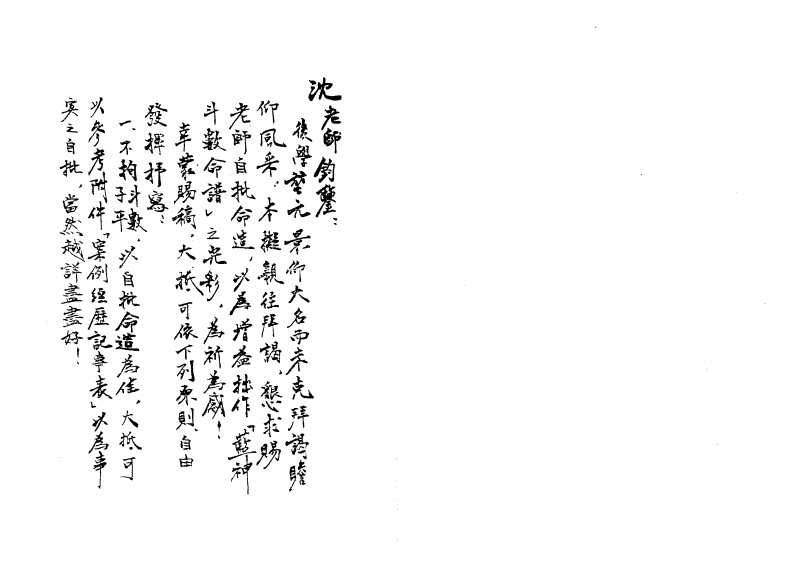 沈老師鈞鑒：
後學堃元景仰大名而未克拜謁瞻
仰風采，本擬親往拜謁，懇求賜
老師自批命造，以為增益拙作「藍神
斗數命譜」之光彩，為祈為感！
幸蒙賜稿，大抵可依下列原則，自由
發揮抒寫：
一、不拘斗數、子平，以自批命造為佳，大抵可
以參考附件「案例經歷記事表」以為事
實之自批，當然越詳盡盡好！